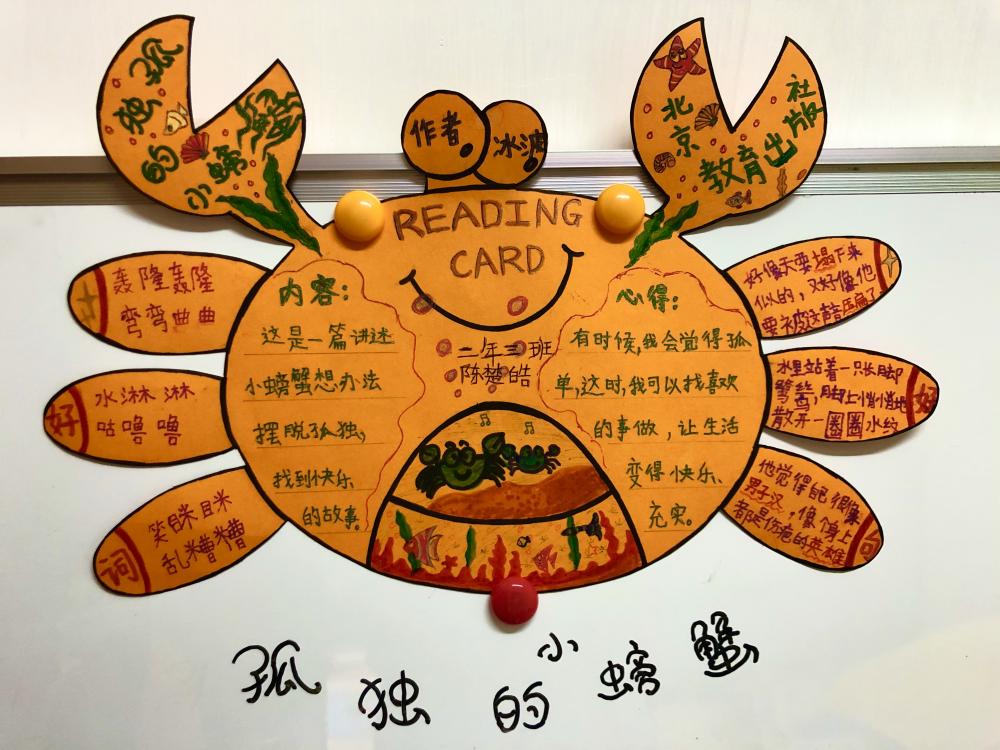 孤独的
小螃蟹
作者
冰波
北京
教育出版社
READING
CARD
轰隆轰隆
弯弯曲曲
好
水淋淋
咕噜噜
词
笑眯眯
乱糟糟
内容：
这是一篇讲述
小螃蟹想办法
摆脱孤独，
找到快乐
的故事。
二年三班
陈楚皓
心得：
有时候，我会觉得孤
单，这时，我可以找喜欢
的事做，让生活
变得快乐、
充实。
好像天要塌下来
似的，又好像他
要被这声音压扁了
水里站着一只长脚
鹭鸶，脚上悄悄地
散开一圈圈水纹
好
他觉得自己很像
男子汉，像个身上
都是伤疤的英雄
句
孤独的小螃蟹